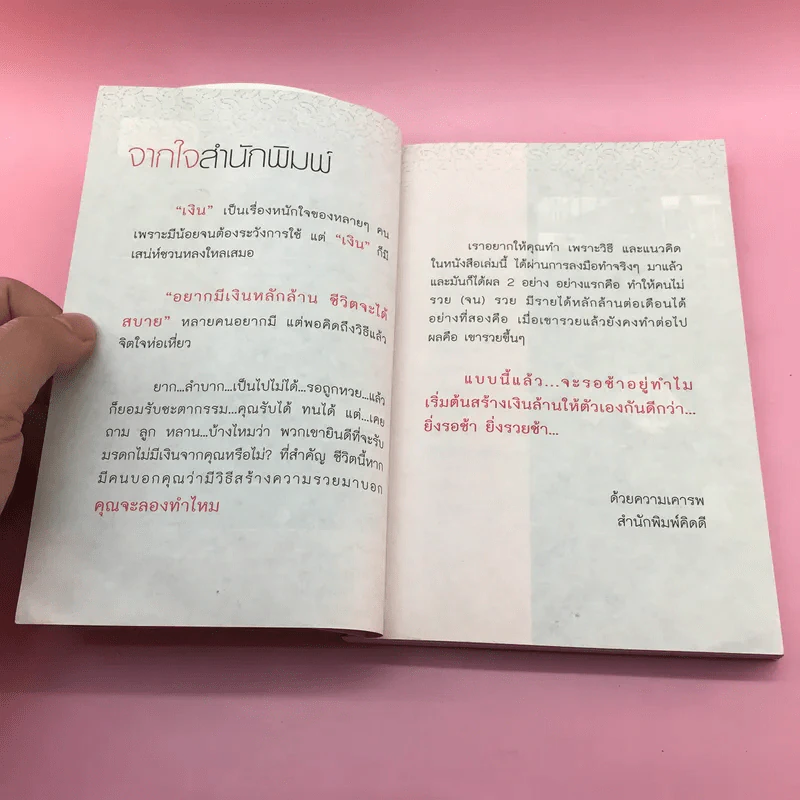 จากใจสำนักพิมพ์
“เงิน” เป็นเรื่องหนักใจของหลายๆ คน
เพราะมีน้อยจนต้องระวังการใช้ แต่ “เงิน” ก็มี
เสน่ห์ชวนหลงใหลเสมอ
“อยากมีเงินหลักล้าน ชีวิตจะได้
สบาย” หลายคนอยากมี แต่พอคิดถึงวิธีแล้ว
จิตใจห่อเหี่ยว
ยาก...ลำบาก...เป็นไปไม่ได้...รอถูกหวย...แล้ว
ก็ยอมรับชะตากรรม...คุณรับได้ ทนได้ แต่...เคย
ถาม ลูก หลาน...บ้างไหมว่า พวกเขายินดีที่จะรับ
มรดกไม่มีเงินจากคุณหรือไม่? ที่สำคัญ ชีวิตนี้หาก
มีคนบอกคุณว่ามีวิธีสร้างความรวยมาบอก
คุณจะลองทำไหม
เราอยากให้คุณทำ เพราะวิธี และแนวคิด
ในหนังสือเล่มนี้ ได้ผ่านการลงมือทำจริงๆ มาแล้ว
และมันก็ได้ผล 2 อย่าง อย่างแรกคือ ทำให้คนไม่
รวย (จน) รวย มีรายได้หลักล้านต่อเดือนได้
อย่างที่สองคือ เมื่อเขารวยแล้วยังคงทำต่อไป
ผลคือ เขารวยขึ้นๆ
แบบนี้แล้ว...จะรอช้าอยู่ทำไม
เริ่มต้นสร้างเงินล้านให้ตัวเองกันดีกว่า...
ยิ่งรอช้า ยิ่งรวยช้า...
ด้วยความเคารพ
สำนักพิมพ์คิดดี